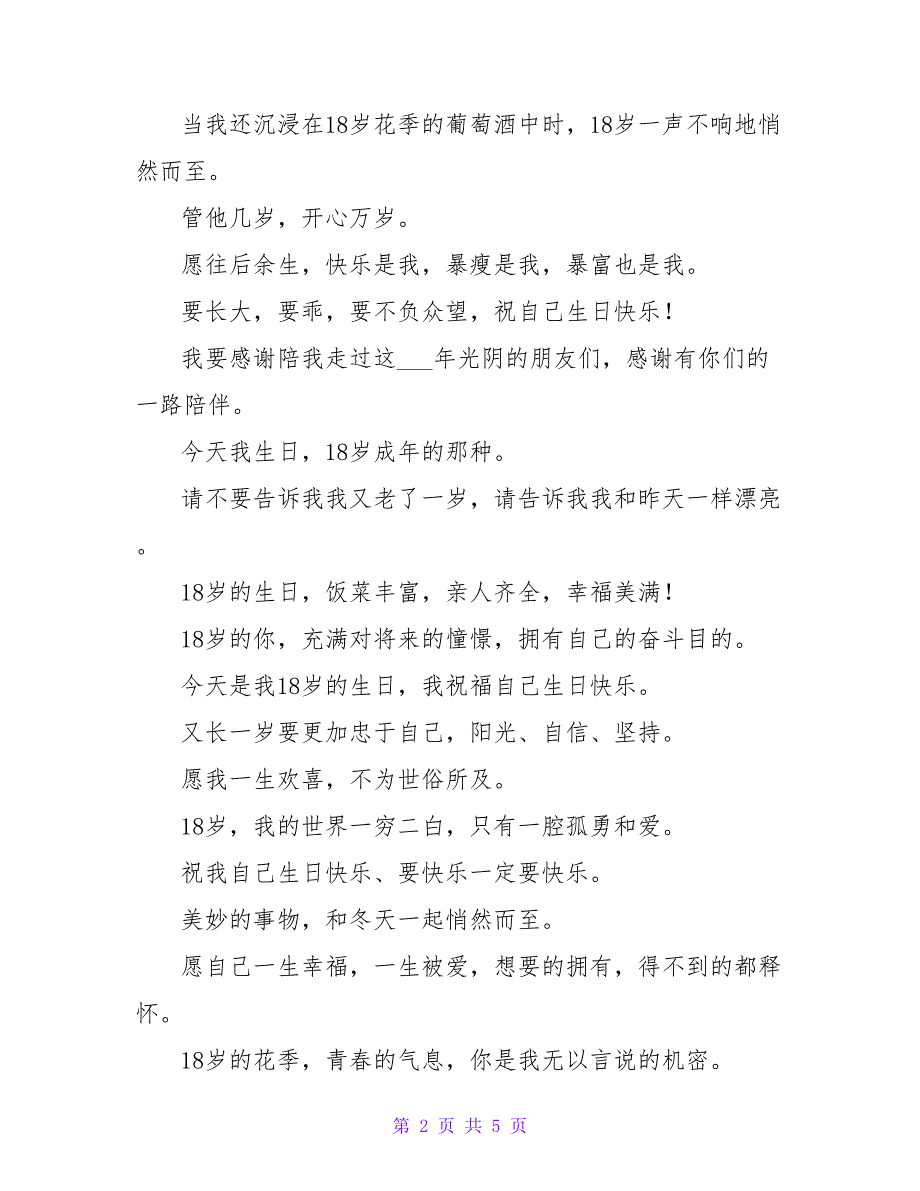 当我还沉浸在18岁花季的葡萄酒中时，18岁一声不响地悄
然而至。
管他几岁，开心万岁。
愿往后余生，快乐是我，暴瘦是我，暴富也是我。
要长大，要乖，要不负众望，祝自己生日快乐！
我要感谢陪我走过这___年光阴的朋友们，感谢有你们的
一路陪伴。
今天我生日，18岁成年的那种。
请不要告诉我我又老了一岁，请告诉我我和昨天一样漂亮
。
18岁的生日，饭菜丰富，亲人齐全，幸福美满！
18岁的你，充满对将来的憧憬，拥有自己的奋斗目的。
今天是我18岁的生日，我祝福自己生日快乐。
又长一岁要更加忠于自己，阳光、自信、坚持。
愿我一生欢喜，不为世俗所及。
18岁，我的世界一穷二白，只有一腔孤勇和爱。
祝我自己生日快乐、要快乐一定要快乐。
美妙的事物，和冬天一起悄然而至。
愿自己一生幸福，一生被爱，想要的拥有，得不到的都释
怀。
18岁的花季，青春的气息，你是我无以言说的机密。
第 2 页 共 5 页